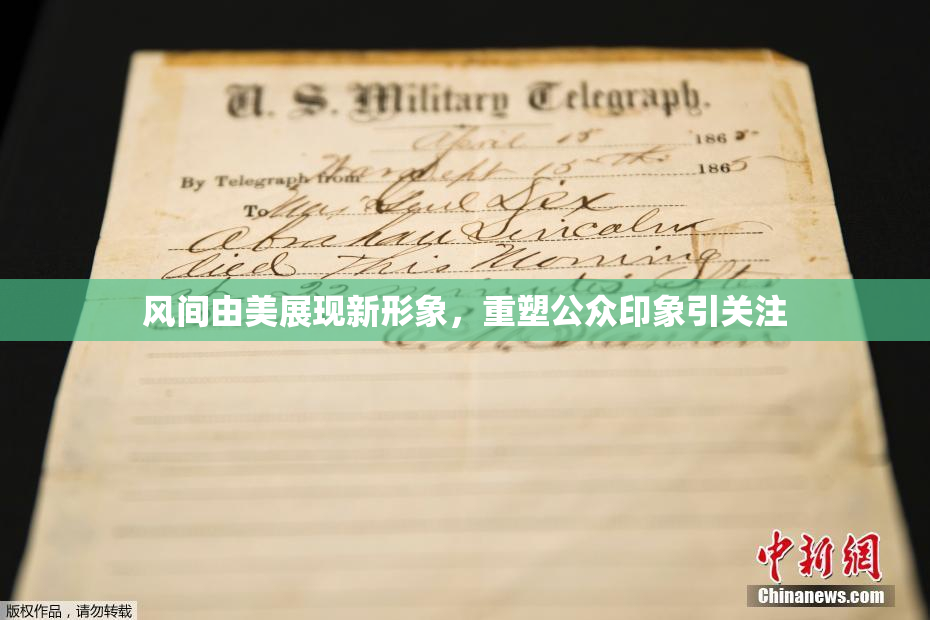 U. S. Military Telegraph.
April 15 1865
By Telegraph from War Dept 15th 1865
To Maj Genl Dix
Abraham Lincoln
died This Morning
at 22 minutes after
风间由美展现新形象，重塑公众印象引关注
E. M. Stanton
中新网
Chinanews.com
版权作品，请勿转载